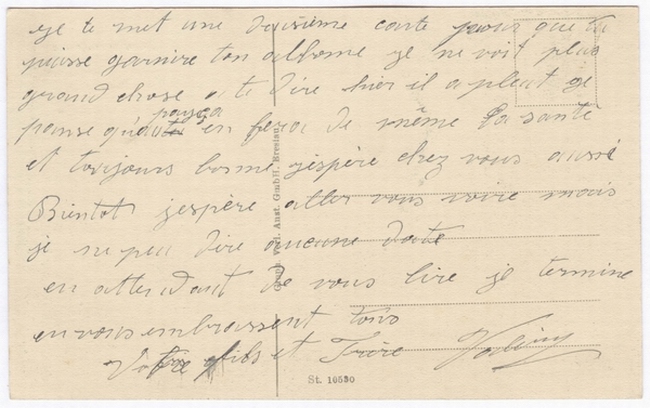 je te met une deuxième carte pour que tu
puisse garnire ton albome je ne voit plus
grand chose a te dire hier il a pleut je
panse qu'au pays ça en fera de même la santé
et toujours bonne j'espère chez vous aussi
Bientot j'espère aller vous voire mais
je ne peu dire aucune date
en attendant de vous lire je termine
en vous embrassent tous
Votre fils et Frère
Graph. Verl. Anst. GmbH. Breslau
St. 10530